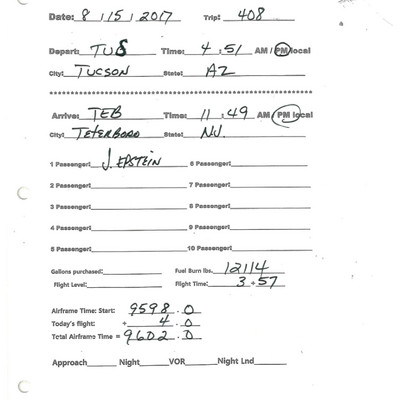 Date: 8 / 5 / 2017 Trip: 408
Depart: TUS Time: 4 : 51 AM / PM local
City: TUCSON State: AZ
Arrive: TEB Time: 11 : 49 AM / PM local
City: TETERBORO State: NJ.
1 Passenger: J. EPSTEIN 6 Passenger:
2 Passenger: 7 Passenger:
3 Passenger: 8 Passenger:
4 Passenger: 9 Passenger:
5 Passenger: 10 Passenger:
Gallons purchased: Fuel Burn lbs. 12114
Flight Level: Flight Time: 3 + 57
Airframe Time: Start: 9598 . 0
Today's flight: + 4 . 0
Total Airframe Time = 9602 . 0
Approach Night VOR Night Lnd